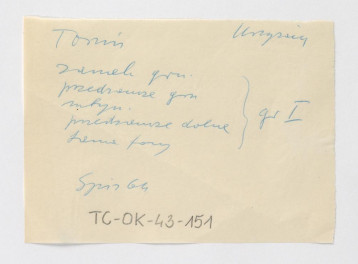 Toruń
zamek gór.
przedzamcze gór
młyn.
przedzamcze dolne
gr I
Spis 64
TC-OK-43-151